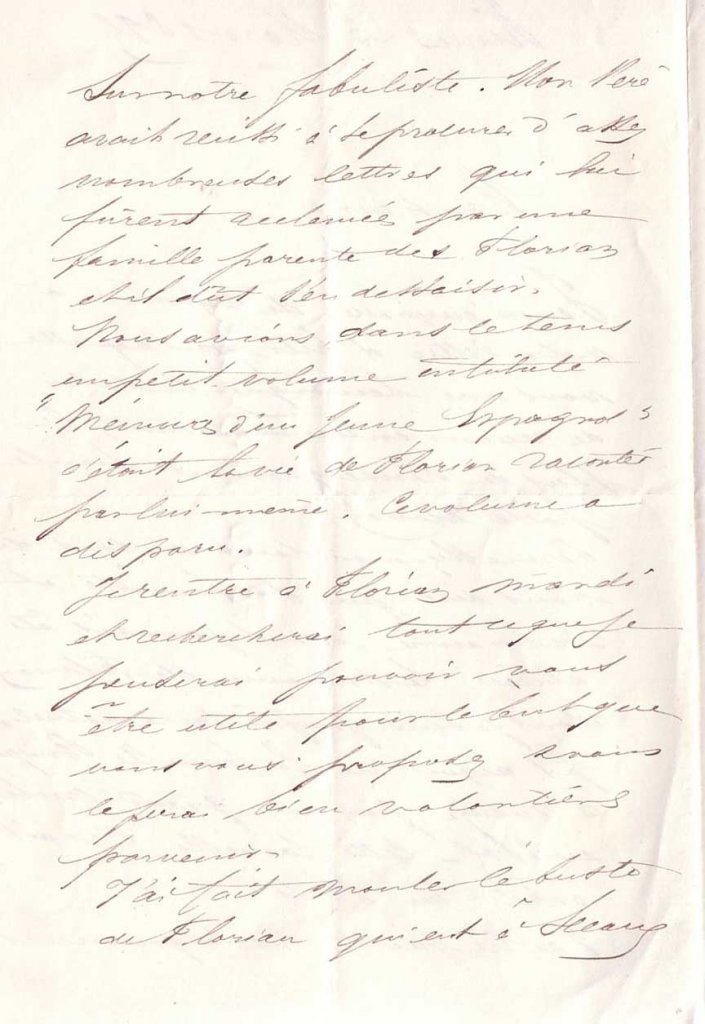 Sur notre fabuliste. Mon Père
avait réussi à se procurer d'assez
nombreuses lettres qui lui
fûrent réclamées par une
famille parente des Florian
et il dût s'en dessaisir.
Nous avions, dans le temps
un petit volume intitulé
"Mémoires d'un Jeune Espagnol"
c'était la vie de Florian racontée
par lui-même. Ce volume a
disparu.
Je rentre à Florian mardi
et rechercherai tout ce que je
penserai pouvoir vous
être utile pour le but que
vous vous proposez & vous
le ferai bien volontiers
parvenir.
J'ai fait mouler le buste
de Florian qui est à Sceaux